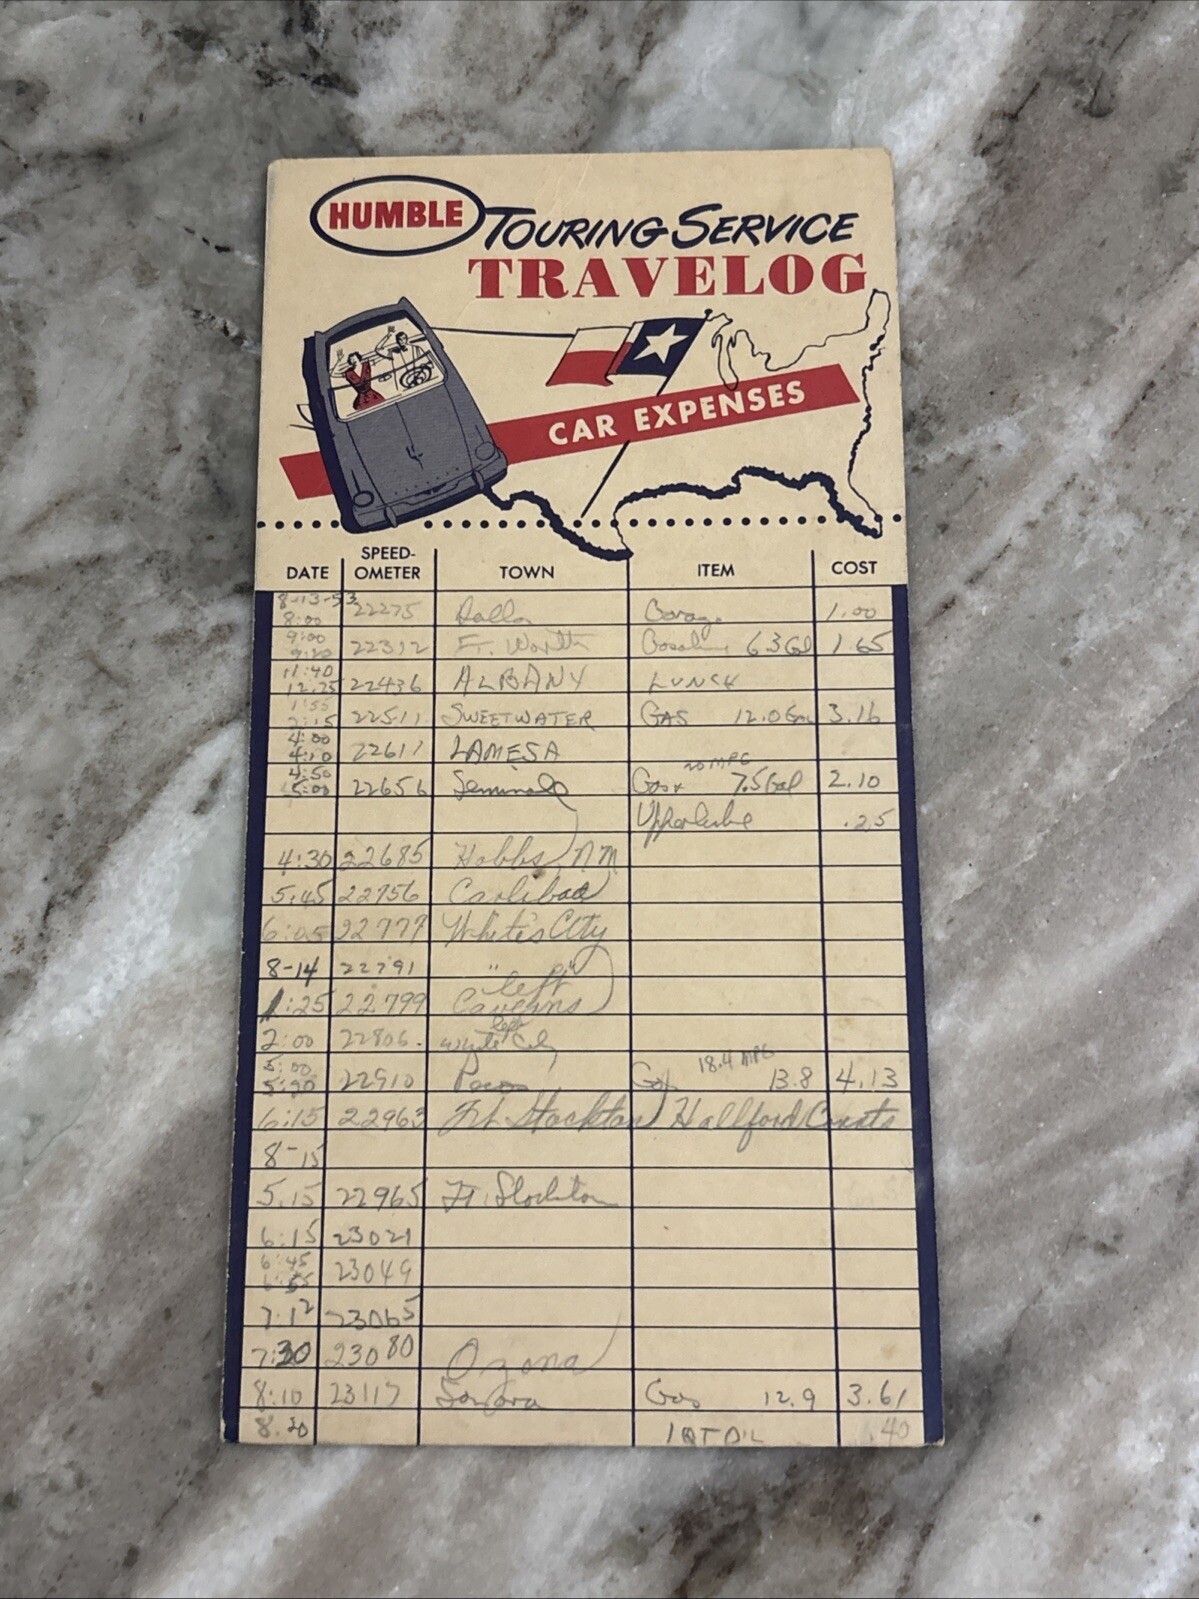 HUMBLE TOURING SERVICE
TRAVELOG
CAR EXPENSES
DATE SPEED-OMETER TOWN ITEM COST
8-13-53
8:00 22275 Dallas Garage 1.00
9:00
9:20 22312 Ft. Worth Gasoline 6.3 Gal 1.65
11:40
12:25 22436 ALBANY LUNCH
1:55
2:15 22511 SWEETWATER GAS 12.0 Gal 3.16
4:00
4:10 22611 LAMESA
4:50 20 MPG
5:00 22656 Seminole Gas 7.5 Gal 2.10
Upperlube .25
4:30 22685 Hobbs, NM
5:45 22756 Carlsbad
6:05 22777 White's City
8-14 22791 " left "
1:25 22799 Caverns
left
2:00 22806. White City
5:00 18.4 MPG
5:20 22910 Pecos Gas 13.8 4.13
6:15 22963 Ft Stockton Hallford Courts
8-15
5:15 22965 Ft. Stockton
6:15 23021
6:45
6:55 23049
7:12 23065
7:30 23080 Ozona
8:10 23117 Sonora Gas 12.9 3.61
8:20 1 QT OIL .40